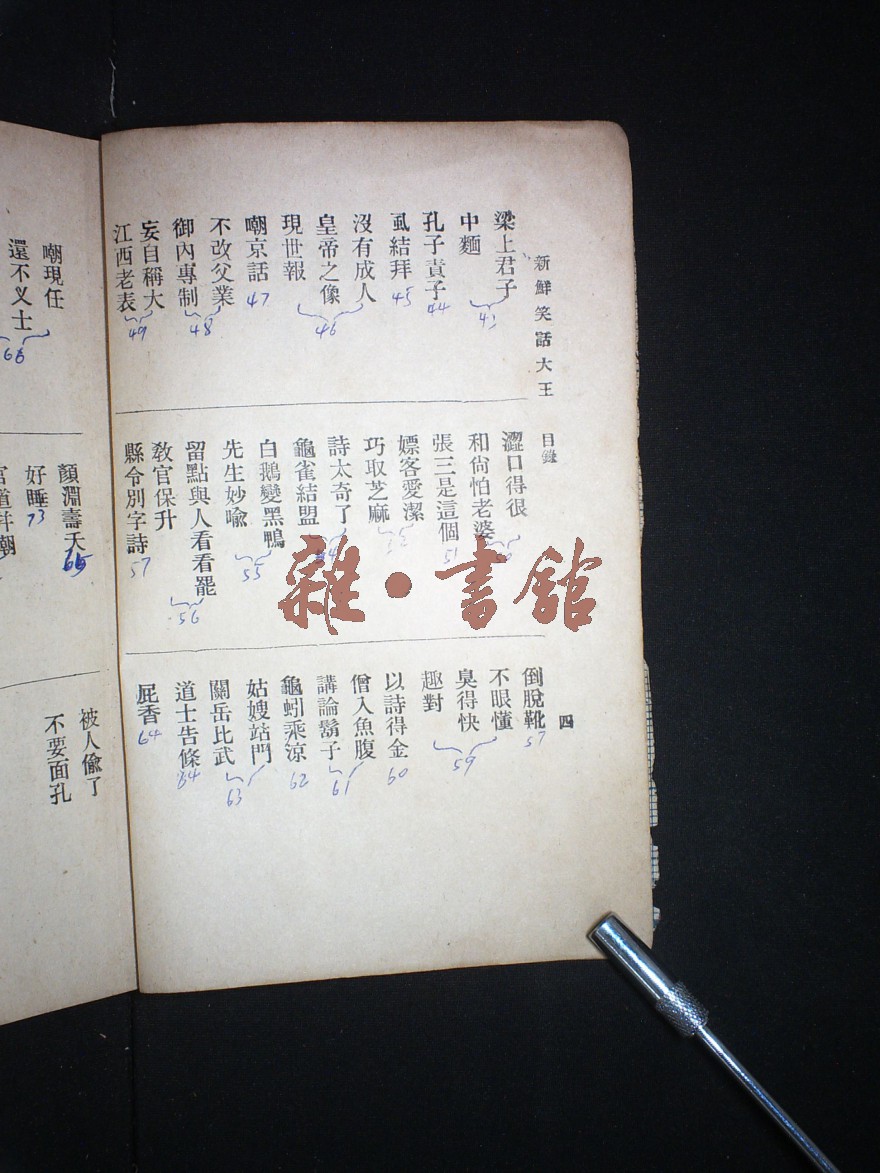 新鮮笑話大王 目錄 四
梁上君子
中麵
43
孔子責子
44
虱結拜
45
沒有成人
皇帝之像
46
現世報
嘲京話
47
不改父業
御內專制
48
妄自稱大
江西老表
49
澀口得很
和尙怕老婆
張三是這個
51
嫖客愛潔
巧取芝麻
詩太奇了
龜雀結盟
白鵝變黑鴨
先生妙喩
55
留點與人看看罷
敎官保升
56
縣令別字詩
57
倒脫靴
57
不眼懂
臭得快
趣對
59
以詩得金
60
僧入魚腹
講論鬍子
61
龜蚓乘涼
62
姑嫂站門
關岳比武
63
道士告條
64
屁香
64
嘲現任
還不义士
66
顏淵壽夭
65
好睡
73
被人偸了
不要面孔
雜·書館